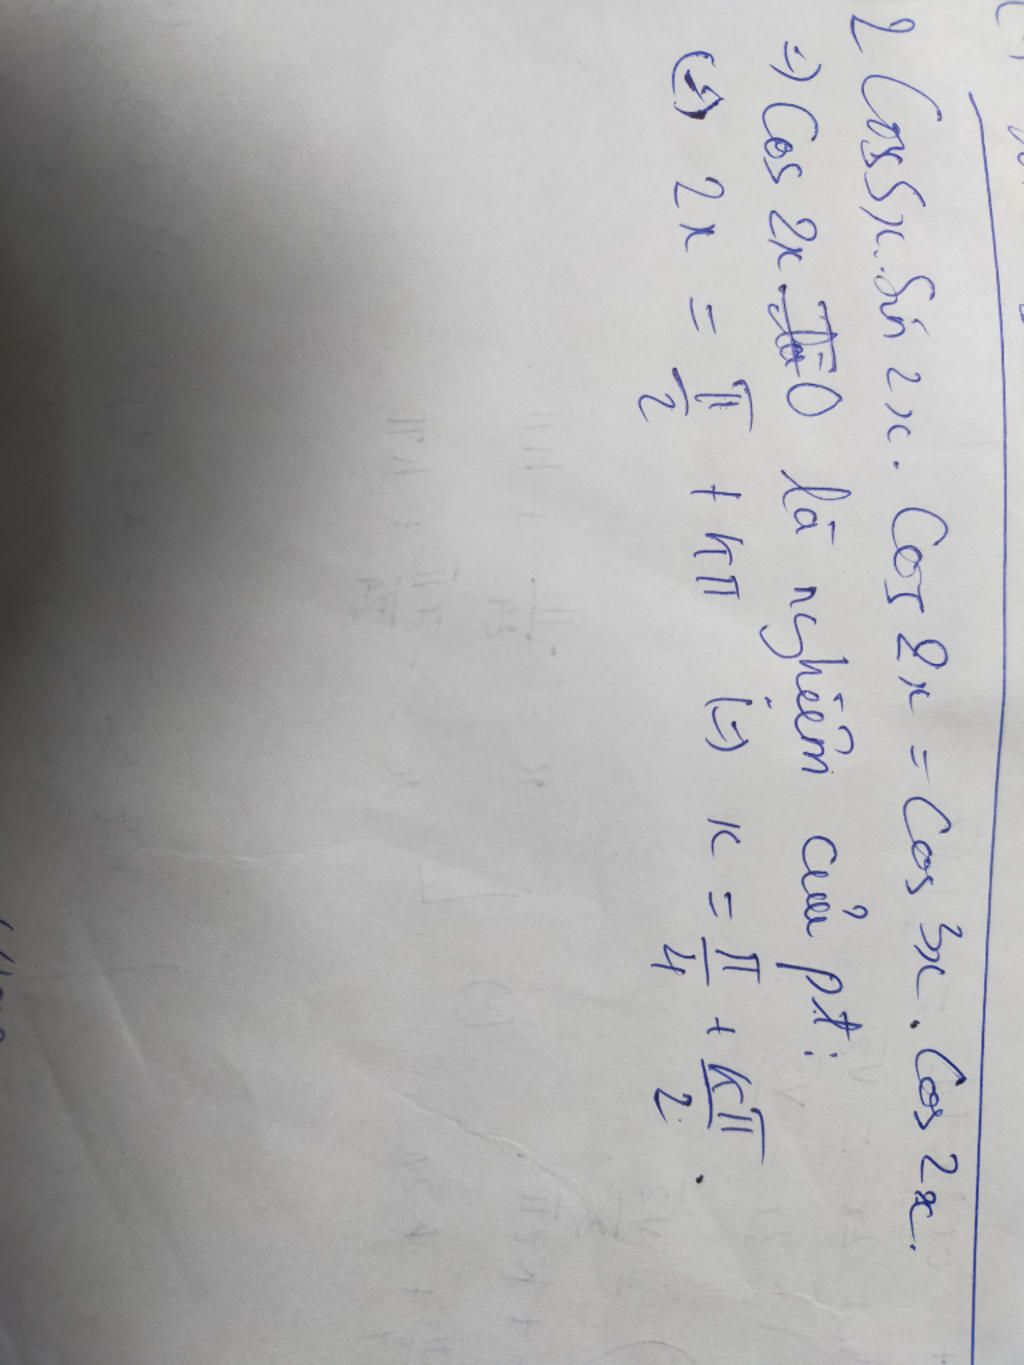 2 Cos5x.Sin 2x. Cos 2x = Cos 3x. Cos 2x.
=) Cos 2x = 0 là nghiệm của pt:
(=) 2x = π/2 + kπ (=) x = π/4 + kπ/2.